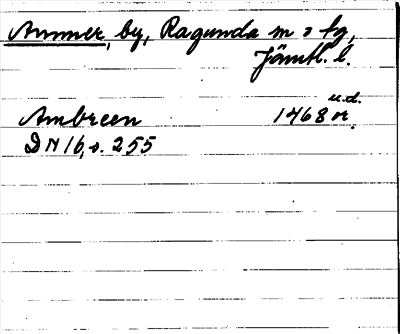 Ammer, by, Ragunda sn o fg,
Jämtl. l.
Ambreen 1468 u.d. or.
DN 16, s. 255